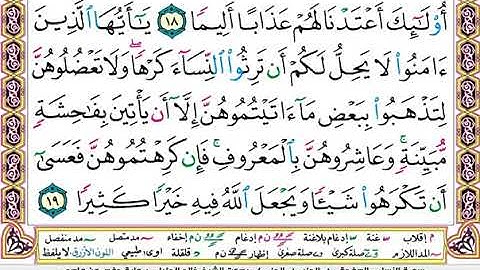 أُوْلَٰٓئِكَ أَعۡتَدۡنَا لَهُمۡ عَذَابًا أَلِيمٗا ١٨ يَٰٓأَيُّهَا ٱلَّذِينَ
ءَامَنُواْ لَا يَحِلُّ لَكُمۡ أَن تَرِثُواْ ٱلنِّسَآءَ كَرۡهٗاۖ وَلَا تَعۡضُلُوهُنَّ
لِتَذۡهَبُواْ بِبَعۡضِ مَآ ءَاتَيۡتُمُوهُنَّ إِلَّآ أَن يَأۡتِينَ بِفَٰحِشَةٖ
مُّبَيِّنَةٖۚ وَعَاشِرُوهُنَّ بِٱلۡمَعۡرُوفِۚ فَإِن كَرِهۡتُمُوهُنَّ فَعَسَىٰٓ
أَن تَكۡرَهُواْ شَيۡـٔٗا وَيَجۡعَلَ ٱللَّهُ فِيهِ خَيۡرٗا كَثِيرٗا ١٩
م إقلاب غنة إدغام بلاغنة إدغام إخفاء مد متصل مد منفصل
المد اللازم صلة كبرى صلة صغرى إظهار قلقلة اوى، طبيعي اللون الأزرق لا يلفظ